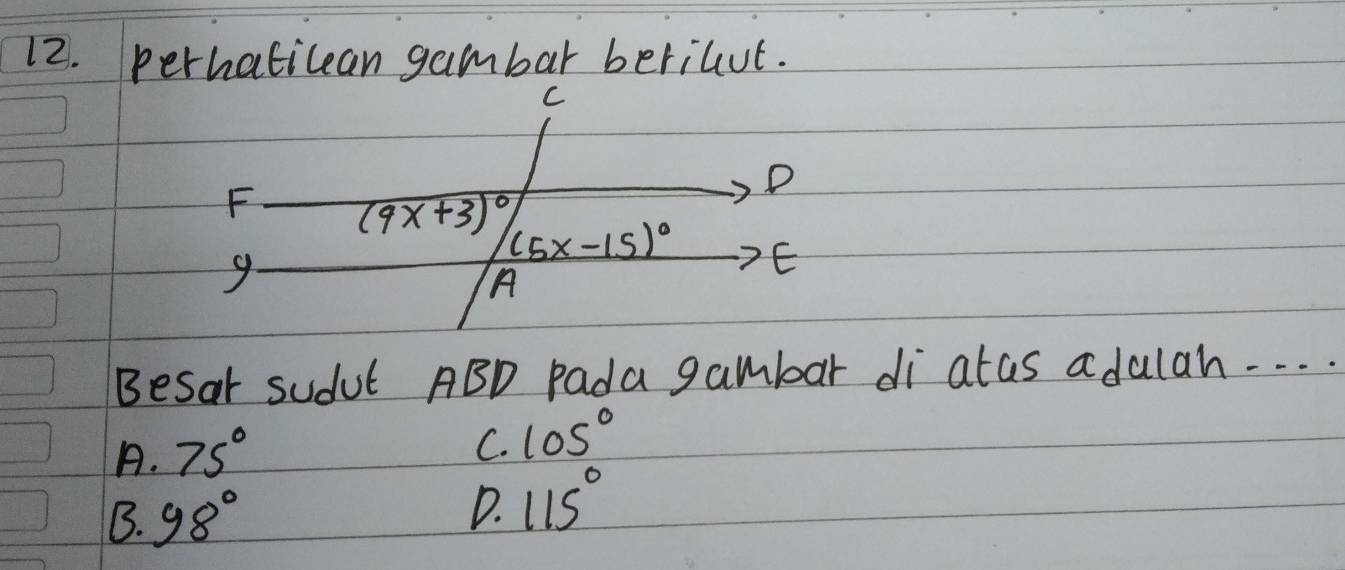 12. Perhatikan gambar berikut.
C
F D
(9x+3)°
(5x-15)°
y E
A
Besar sudut ABD pada gambar di atas adalah ....
A. 75° C. 105°
B. 98° D. 115°